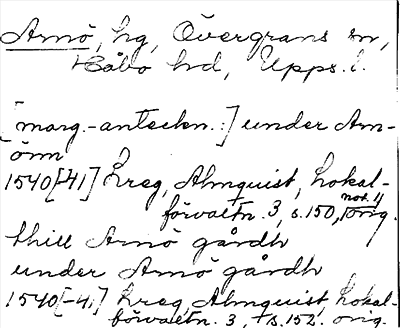 Arnö, hg, Övergrans sn,
Håbo hd, Upps. l.
[marg.-anteckn.:] under Arn-
öm
1540[-41] Kreg, Almquist, Lokal-
förvaltn. 3, s. 150, not 1) orig.
thill Arnö gårdh
under Arnö gårdh
1540[-41] Kreg, Almquist, Lokal-
förvaltn. 3, s. 152. orig.